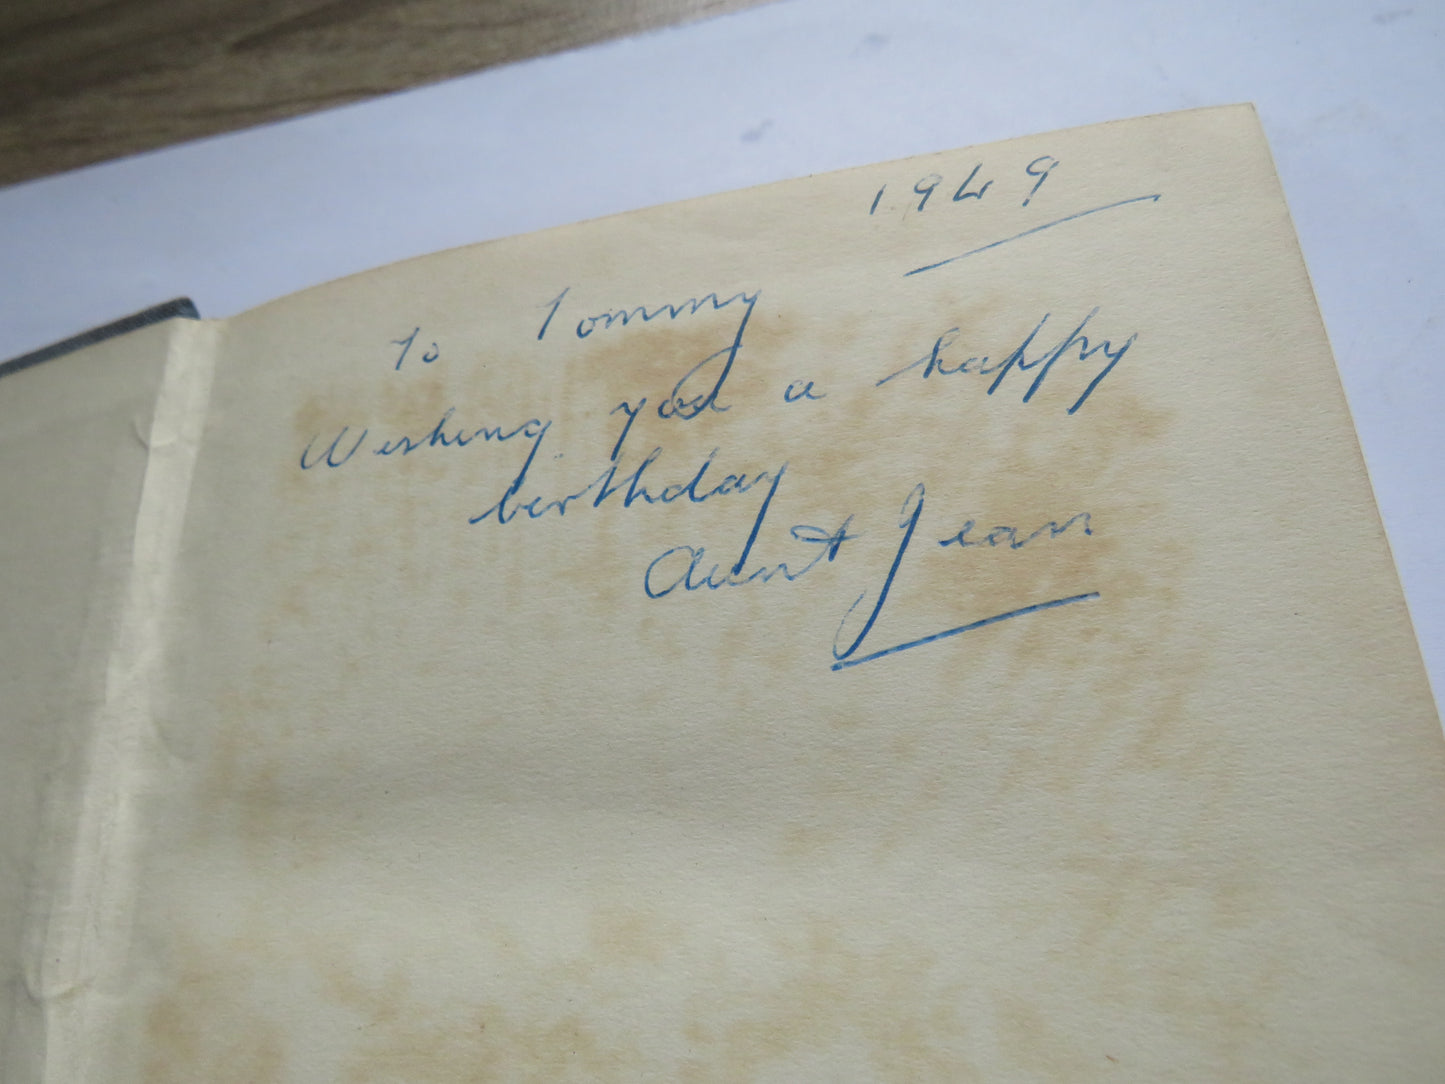 1949
To Tommy
Wishing you a happy
birthday
Aunt Jean